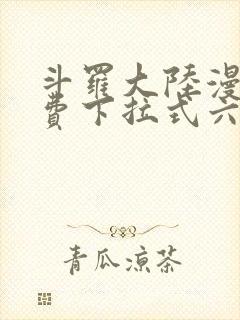 斗羅大陸漫
費下拉式六
青瓜涼茶